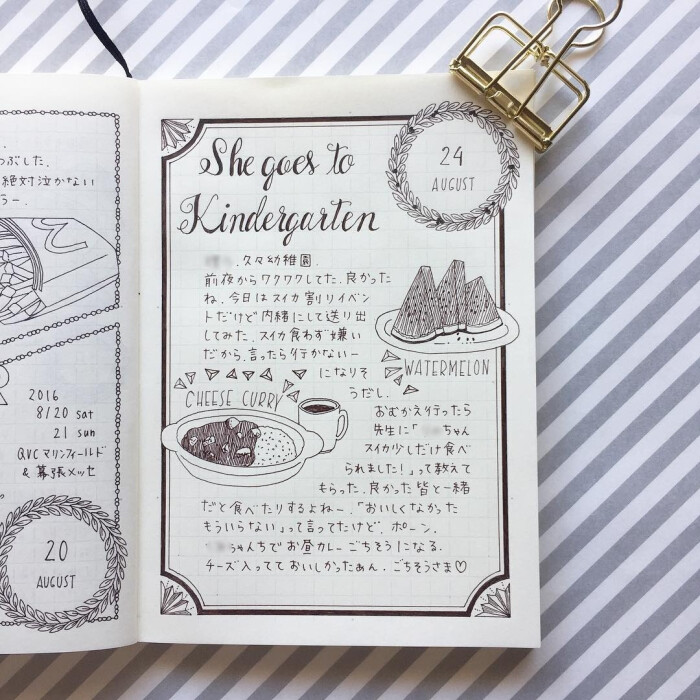 つぶした.
絶対泣かない
ラー.
2016
8/20 sat
21 sun
QVCマリンフィールド
&幕張メッセ
20
AUGUST
She goes to
Kindergarten
24
AUGUST
.久々幼稚園.
前夜からワクワクしてた.良かった
ね.今日はスイカ割りイベン
トだけど内緒にして送り出
してみた.スイカ食わず嫌い
だから.言ったら行かないー
になりそ
うだし.
WATERMELON
CHEESE CURRY
おむかえ行ったら
先生に「ちゃん
スイカ少しだけ食べ
られました!」って教えて
もらった.良かった皆と一緒
だと食べたりするよねー.「おいしくなかった
もういらない」って言ってたけど.ポーン.
ちゃんちでお昼カレーごちそうになる.
チーズ入ってておいしかったぁん.ごちそうさま♡